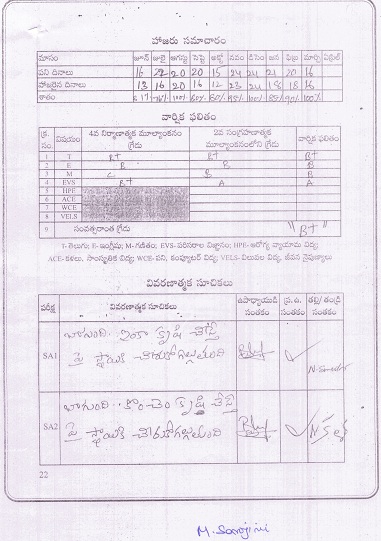 హాజరు సమాచారం
మాసం జూన్ జులై ఆగష్టు సెప్టె అక్టో నవం డిసెం జన ఫిబ్ర మార్చి ఏప్రిల్
పని దినాలు 16 22 20 20 15 24 24 21 20 16
హాజరైన దినాలు 13 16 20 16 12 23 24 18 18 16
శాతం
వార్షిక ఫలితం
క్ర. సం. విషయం 4వ నిర్మాణాత్మక మూల్యాంకనం గ్రేడు 2వ సంగ్రహణాత్మక మూల్యాంకనంలోని గ్రేడు వార్షిక ఫలితం గ్రేడు
1 T B+ B+ B+
2 E B B B
3 M C B B
4 EVS B+ A A
5 HPE
6 ACE
7 WCE
8 VELS
9 సంవత్సరాంత గ్రేడు "B+"
T- తెలుగు; E- ఇంగ్లీషు; M-గణితం; EVS-పరిసరాల విజ్ఞానం; HPE-ఆరోగ్య వ్యాయామ విద్య
ACE-కళలు, సాంస్కృతిక విద్య; WCE-పని, కంప్యూటర్ విద్య; VELS-విలువల విద్య, జీవన నైపుణ్యాలు
వివరణాత్మక సూచికలు
పరీక్ష వివరణాత్మక సూచికలు ఉపాధ్యాయుడి సంతకం ప్ర.ఉ. సంతకం తల్లి/ తండ్రి సంతకం
బాగుంది. ఇంకా కృషి చేస్తే
SA1 పై స్థాయికి చేరుకోగల్గుతుంది
బాగుంది. కొంచెం కృషి చేస్తే
SA2 పై స్థాయికి చేరుకోగల్గుతుంది
22
M. Sarojini